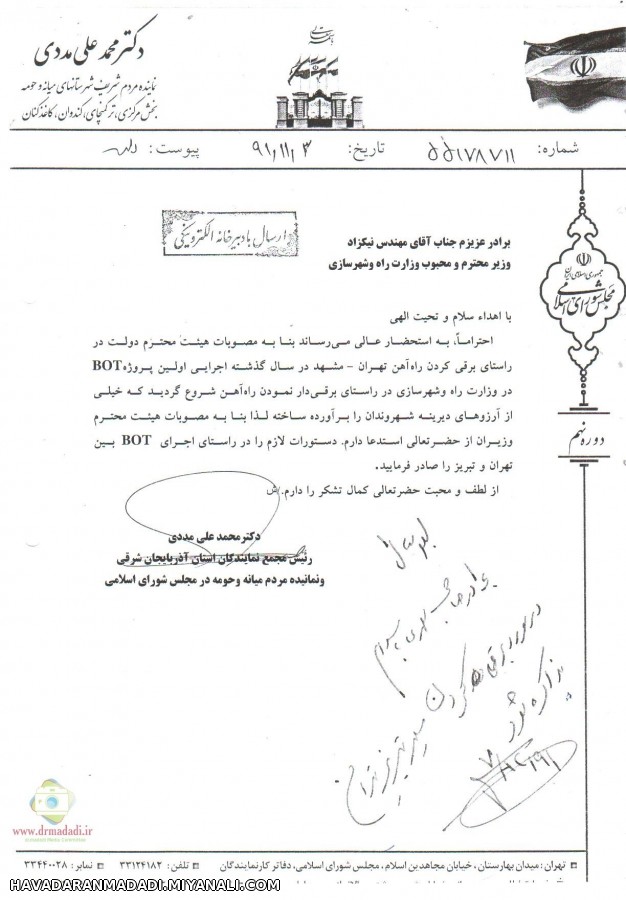 دکتر محمد علی مددی
نماینده مردم شریف شهرستانهای میانه و حومه
بخش مرکزی، ترکمنچای، کندوان، کاغذکنان
شماره: ۵۵۱۷۸۷۱۱
تاریخ: ۹۱/۱۱/۳
پیوست:
ارسال با دبیرخانه الکترونیکی
جمهوری اسلامی ایران
مجلس شورای اسلامی
دوره نهم
برادر عزیزم جناب آقای مهندس نیکزاد
وزیر محترم و محبوب وزارت راه وشهرسازی
با اهداء سلام و تحیت الهی
احتراماً، به استحضار عالی می‌رساند بنا به مصوبات هیئت محترم دولت در
راستای برقی کردن راه‌آهن تهران – مشهد در سال گذشته اجرایی اولین پروژه BOT
در وزارت راه وشهرسازی در راستای برقی‌دار نمودن راه‌آهن شروع گردید که خیلی
از آرزوهای دیرینه شهروندان را برآورده ساخته لذا بنا به مصوبات هیئت محترم
وزیران از حضرتعالی استدعا دارم. دستورات لازم را در راستای اجرای BOT بین
تهران و تبریز را صادر فرمایید.
از لطف و محبت حضرتعالی کمال تشکر را دارم./ش
دکترمحمد علی مددی
رئیس مجمع نمایندگان استان آذربایجان شرقی
ونمانیده مردم میانه وحومه در مجلس شورای اسلامی
در مورد برقی کردن
تبریز تهران
مذاکره شود
www.drmadadi.ir
تهران: میدان بهارستان، خیابان مجاهدین اسلام، مجلس شورای اسلامی، دفاتر کارنمایندگان
تلفن: ۳۳۱۲۴۱۸۲
نمابر: ۳۳۴۴۰۰۲۸
HAVADARANMADADI.MIYANALI.COM